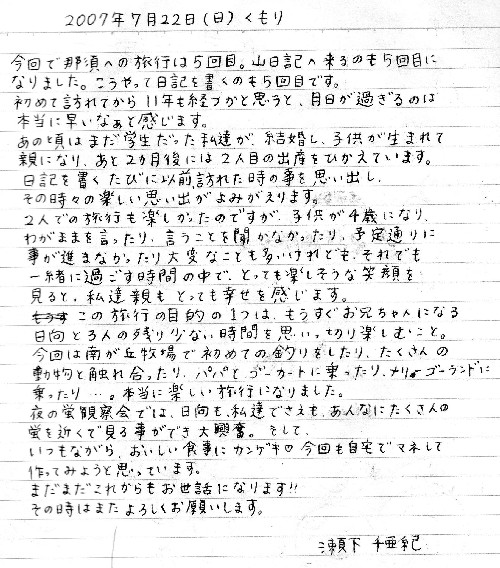 2007年7月22日(日)くもり
今回で那須への旅行は5回目。山日記へ来るのも5回目に
なりました。こうやって日記を書くのも5回目です。
初めて訪れてから11年も経つかと思うと、月日が過ぎるのは
本当に早いなぁと感じます。
あの頃はまだ学生だった私達が、結婚し、子供が生まれて
親になり、あと2カ月後には2人目の出産をひかえています。
日記を書くたびに以前訪れた時の事を思い出し、
その時々の楽しい思い出がよみがえります。
2人での旅行も楽しかったのですが、子供が4歳になり、
わがままを言ったり、言うことを聞かなかったり、予定通りに
事が進まなかったり大変なことも多いけれども、それでも
一緒に過ごす時間の中で、とっても楽しそうな笑顔を
見ると、私達親もとっても幸せを感じます。
この旅行の目的の1つは、もうすぐお兄ちゃんになる
日向と3人の残り少ない時間を思いっ切り楽しむこと。
今回は南が丘牧場で初めての釣りをしたり、たくさんの
動物と触れ合ったり、パパとゴーカートに乗ったり、メリーゴーランドに
乗ったり…。本当に楽しい旅行になりました。
夜の蛍観察会では、日向も、私達でさえも、あんなにたくさんの
蛍を近くで見る事ができ大興奮。そして、
いつもながら、おいしい食事にカンゲキ♡今回も自宅でマネして
作ってみようと思っています。
まだまだこれからもお世話になります!!
その時はまたよろしくお願いします。
瀬下 千亜紀